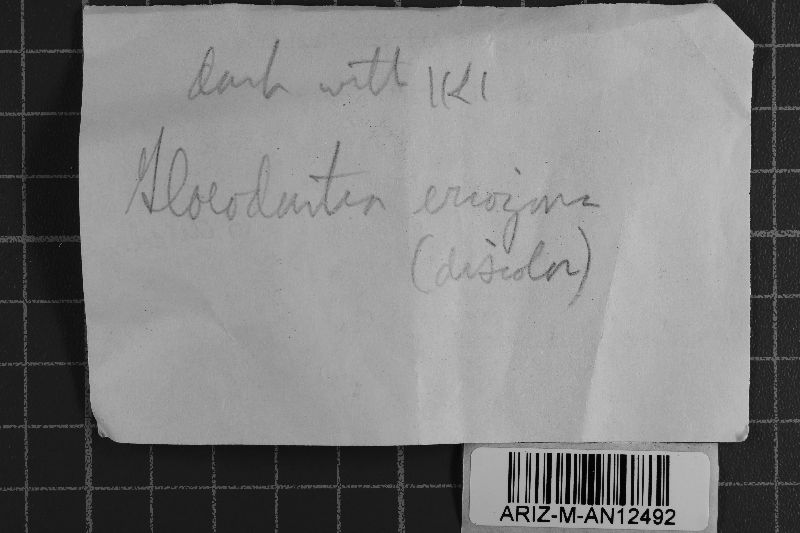 dark with IKI
Gloeodontia eriozona
(discolor)
ARIZ-M-AN12492